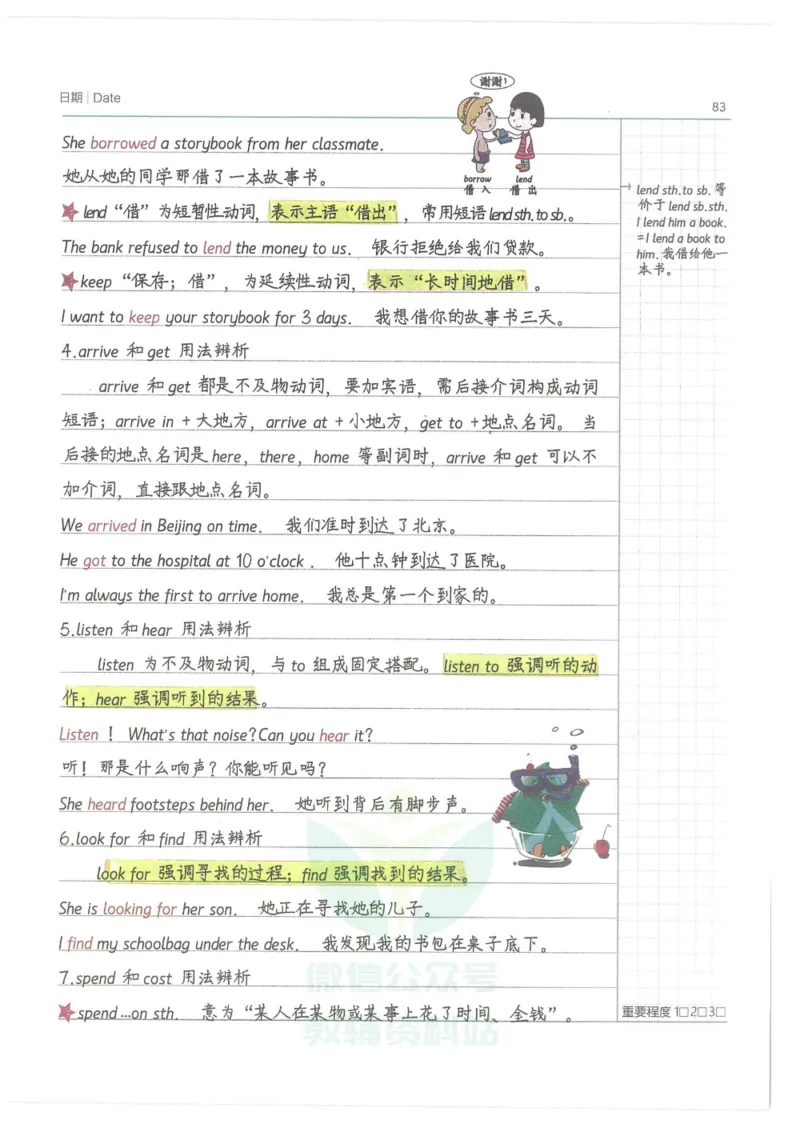 日期 | Date
83
谢谢！
borrow 借入
lend 借出
She borrowed a storybook from her classmate.
她从她的同学那借了一本故事书。
lend“借”为短暂性动词，表示主语“借出”，常用短语lend sth. to sb.。
The bank refused to lend the money to us. 银行拒绝给我们贷款。
keep“保存；借”，为延续性动词，表示“长时间地借”。
I want to keep your storybook for 3 days. 我想借你的故事书三天。
4.arrive 和 get 用法辨析
arrive 和 get 都是不及物动词，要加宾语，需后接介词构成动词
短语；arrive in + 大地方，arrive at + 小地方，get to + 地点名词。当
后接的地点名词是 here，there，home 等副词时，arrive 和 get 可以不
加介词，直接跟地点名词。
We arrived in Beijing on time. 我们准时到达了北京。
He got to the hospital at 10 o'clock . 他十点钟到达了医院。
I'm always the first to arrive home. 我总是第一个到家的。
5.listen 和 hear 用法辨析
listen 为不及物动词，与 to 组成固定搭配。listen to 强调听的动
作；hear 强调听到的结果。
Listen ！ What's that noise? Can you hear it?
听！那是什么响声？你能听见吗？
She heard footsteps behind her. 她听到背后有脚步声。
6.look for 和 find 用法辨析
look for 强调寻找的过程；find 强调找到的结果。
She is looking for her son. 她正在寻找她的儿子。
I find my schoolbag under the desk. 我发现我的书包在桌子底下。
7.spend 和 cost 用法辨析
spend ...on sth. 意为“某人在某物或某事上花了时间、金钱”。
→ lend sth. to sb. 等
价于 lend sb. sth.
I lend him a book.
=I lend a book to
him. 我借给他一
本书。
重要程度 1□2□3□
微信公众号
教辅资料站